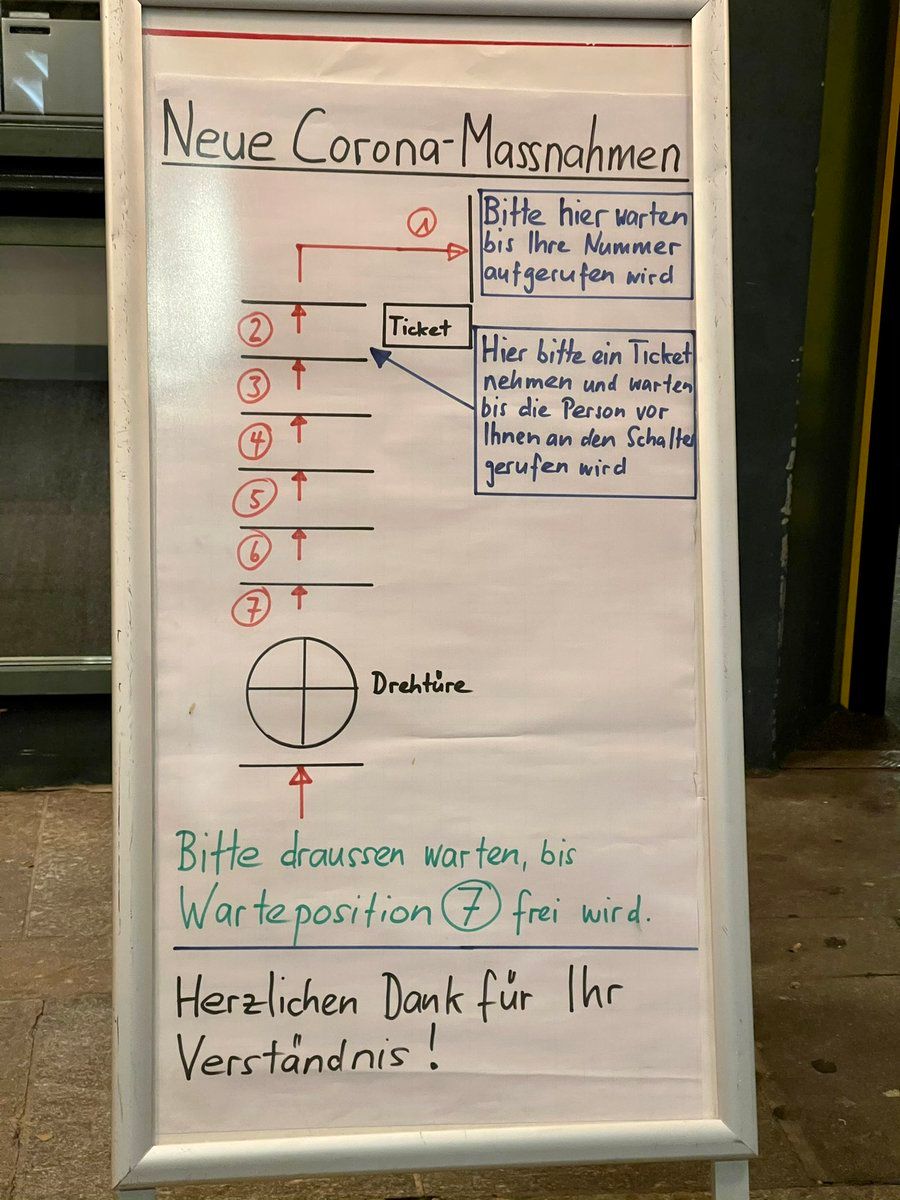 Neue Corona-Massnahmen
1
Bitte hier warten
bis Ihre Nummer
aufgerufen wird
2
Ticket
Hier bitte ein Ticket
nehmen und warten
bis die Person vor
Ihnen an den Schalter
gerufen wird
3
4
5
6
7
Drehtüre
Bitte draussen warten, bis
Warteposition 7 frei wird.
Herzlichen Dank für Ihr
Verständnis!